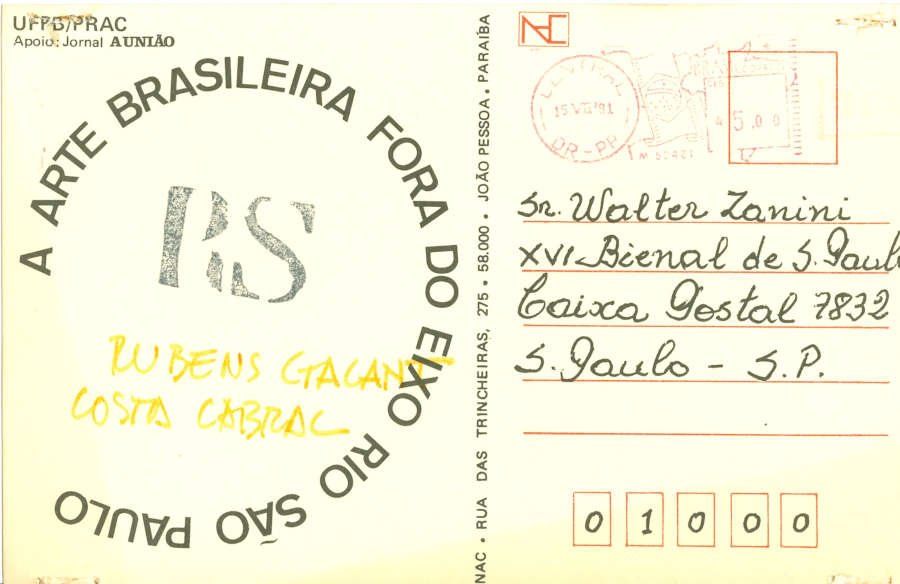 UFPB/PRAC
Apoio: Jornal A UNIÃO
A ARTE BRASILEIRA FORA DO EIXO RIO SÃO PAULO
RS
RUBENS
COSTA CABRAL
NAC • RUA DAS TRINCHEIRAS, 275 • 58.000 • JOÃO PESSOA • PARAÍBA
NAC
CENTRAL
15 VII '81
DR-PB
5,00
Sr. Walter Zanini
XVI Bienal de S. Paulo
Caixa Postal 7832
S. Paulo - S.P.
0 1 0 0 0